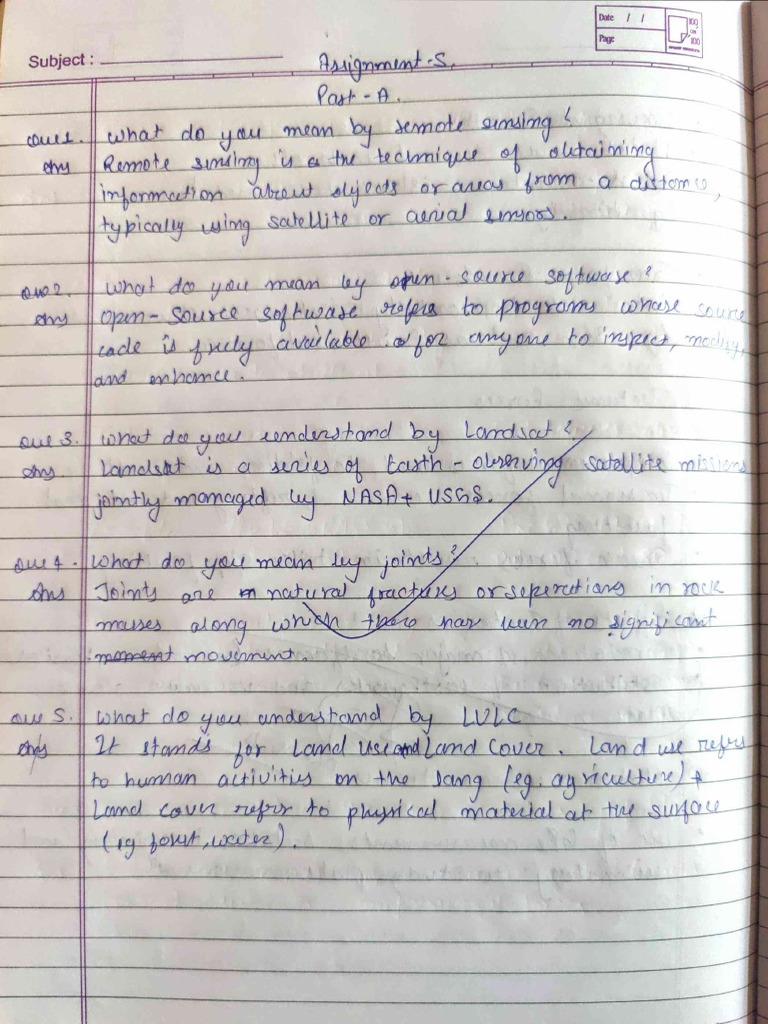 Date / /
Page
100 on 100
Subject :
Assignment-5.
Part-A.
Que 1. What do you mean by remote sensing?
Ans Remote sensing is a the technique of obtaining
information about objects or areas from a distance,
typically using satellite or aerial sensors.
Que 2. What do you mean by open-source software?
Ans Open-Source software refers to programs whose source
code is freely available for anyone to inspect, modify,
and enhance.
Que 3. What do you understand by Landsat?
Ans Landsat is a series of Earth-observing satellite missions
jointly managed by NASA + USGS.
Que 4. What do you mean by joints?
Ans Joints are natural fractures or seperations in rock
masses along which there has been no significant
moment movement.
Que 5. What do you understand by LULC
Ans It stands for Land Use and Land Cover. Land use refers
to human activities on the lang (eg. agriculture) +
Land cover refer to physical material at the surface
(eg forest, water).